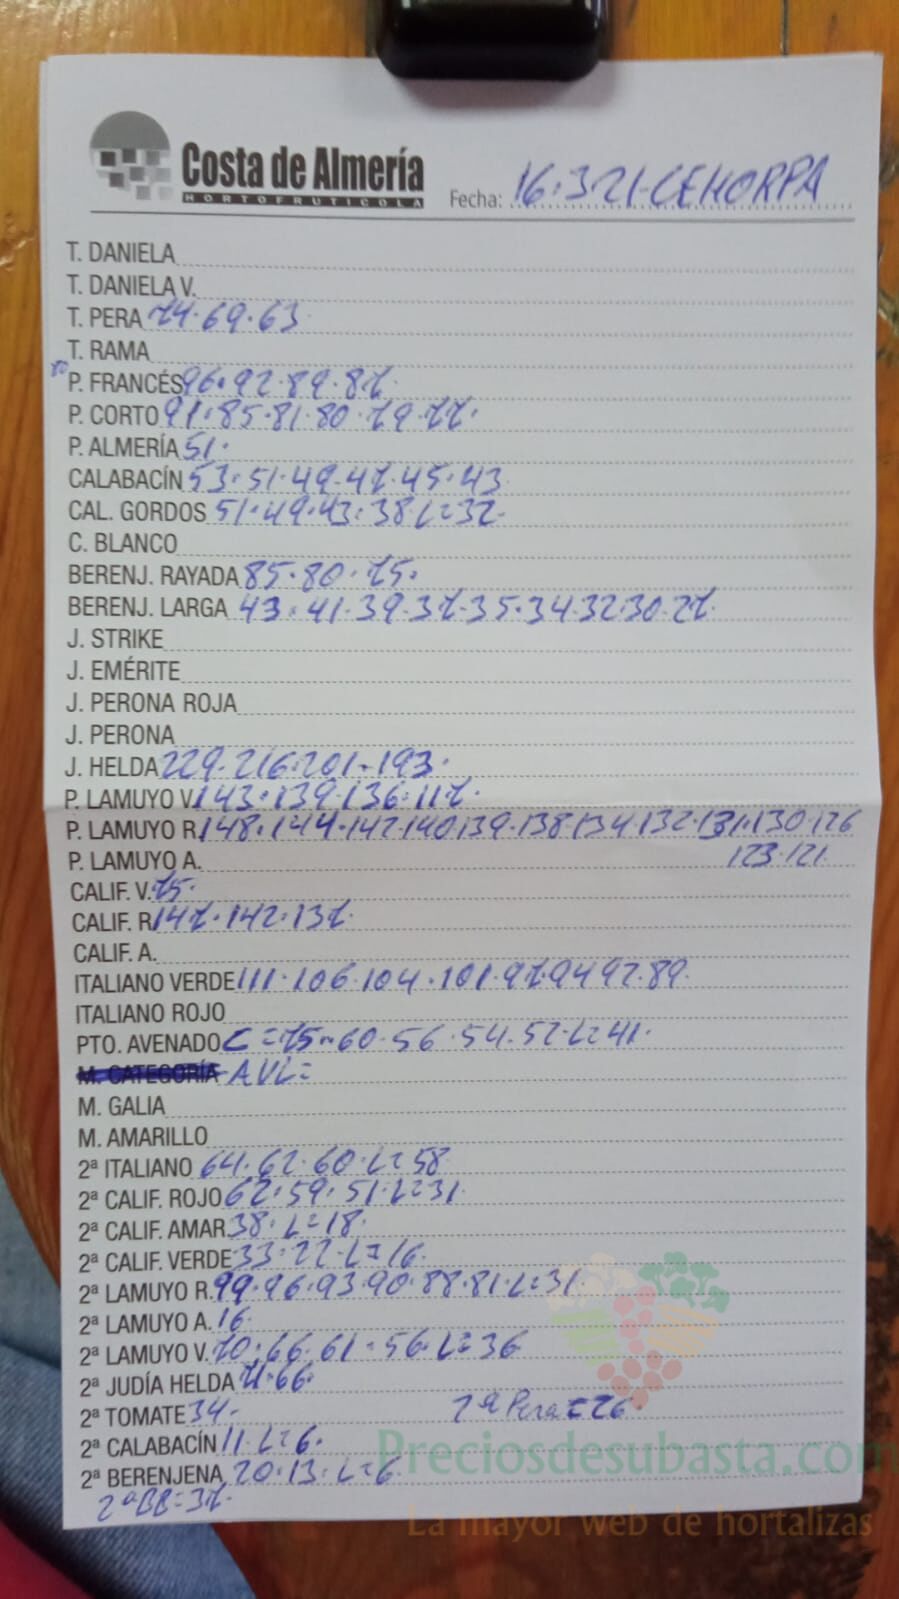 Costa de Almería
HORTOFRUTICOLA
Fecha: 16.3.21-CEHORPA
T. DANIELA
T. DANIELA V.
T. PERA 74.69.63
T. RAMA
P. FRANCÉS 96.92.89.87.
P. CORTO 91.85.81.80.79.77.
P. ALMERÍA 51.
CALABACÍN 53.51.49.47.45.43
CAL. GORDOS 51.49.43.38 L=32.
C. BLANCO
BERENJ. RAYADA 85.80.75.
BERENJ. LARGA 43.41.39.37.35.34.32.30.27.
J. STRIKE
J. EMÉRITE
J. PERONA ROJA
J. PERONA
J. HELDA 229.216.201-193.
P. LAMUYO V. 143.139.136.117.
P. LAMUYO R. 148.144.142.140.139.138.134.132.131.130.126
P. LAMUYO A. 123.121.
CALIF. V. 75.
CALIF. R. 147.142.137.
CALIF. A.
ITALIANO VERDE 111.106.104.101.97.94 92.89.
ITALIANO ROJO
PTO. AVENADO C=75-60.56.54.52.L=41.
M. CATEGORÍA A.VL=
M. GALIA
M. AMARILLO
2ª ITALIANO 64.62.60.L=58
2ª CALIF. ROJO 62.59.51.L=31.
2ª CALIF. AMAR 38.L=18.
2ª CALIF. VERDE 33.22-L=16.
2ª LAMUYO R. 99.96.93.90.88.81.L=31.
2ª LAMUYO A. 16.
2ª LAMUYO V. 70.66.61-56.L=36
2ª JUDÍA HELDA 71.66.
2ª TOMATE 34. 2ª Pera=26.
2ª CALABACÍN 11.L=6.
2ª BERENJENA 20.13.L=6.
2ªBB=37.
Preciosdesubasta.com
La mayor web de hortalizas